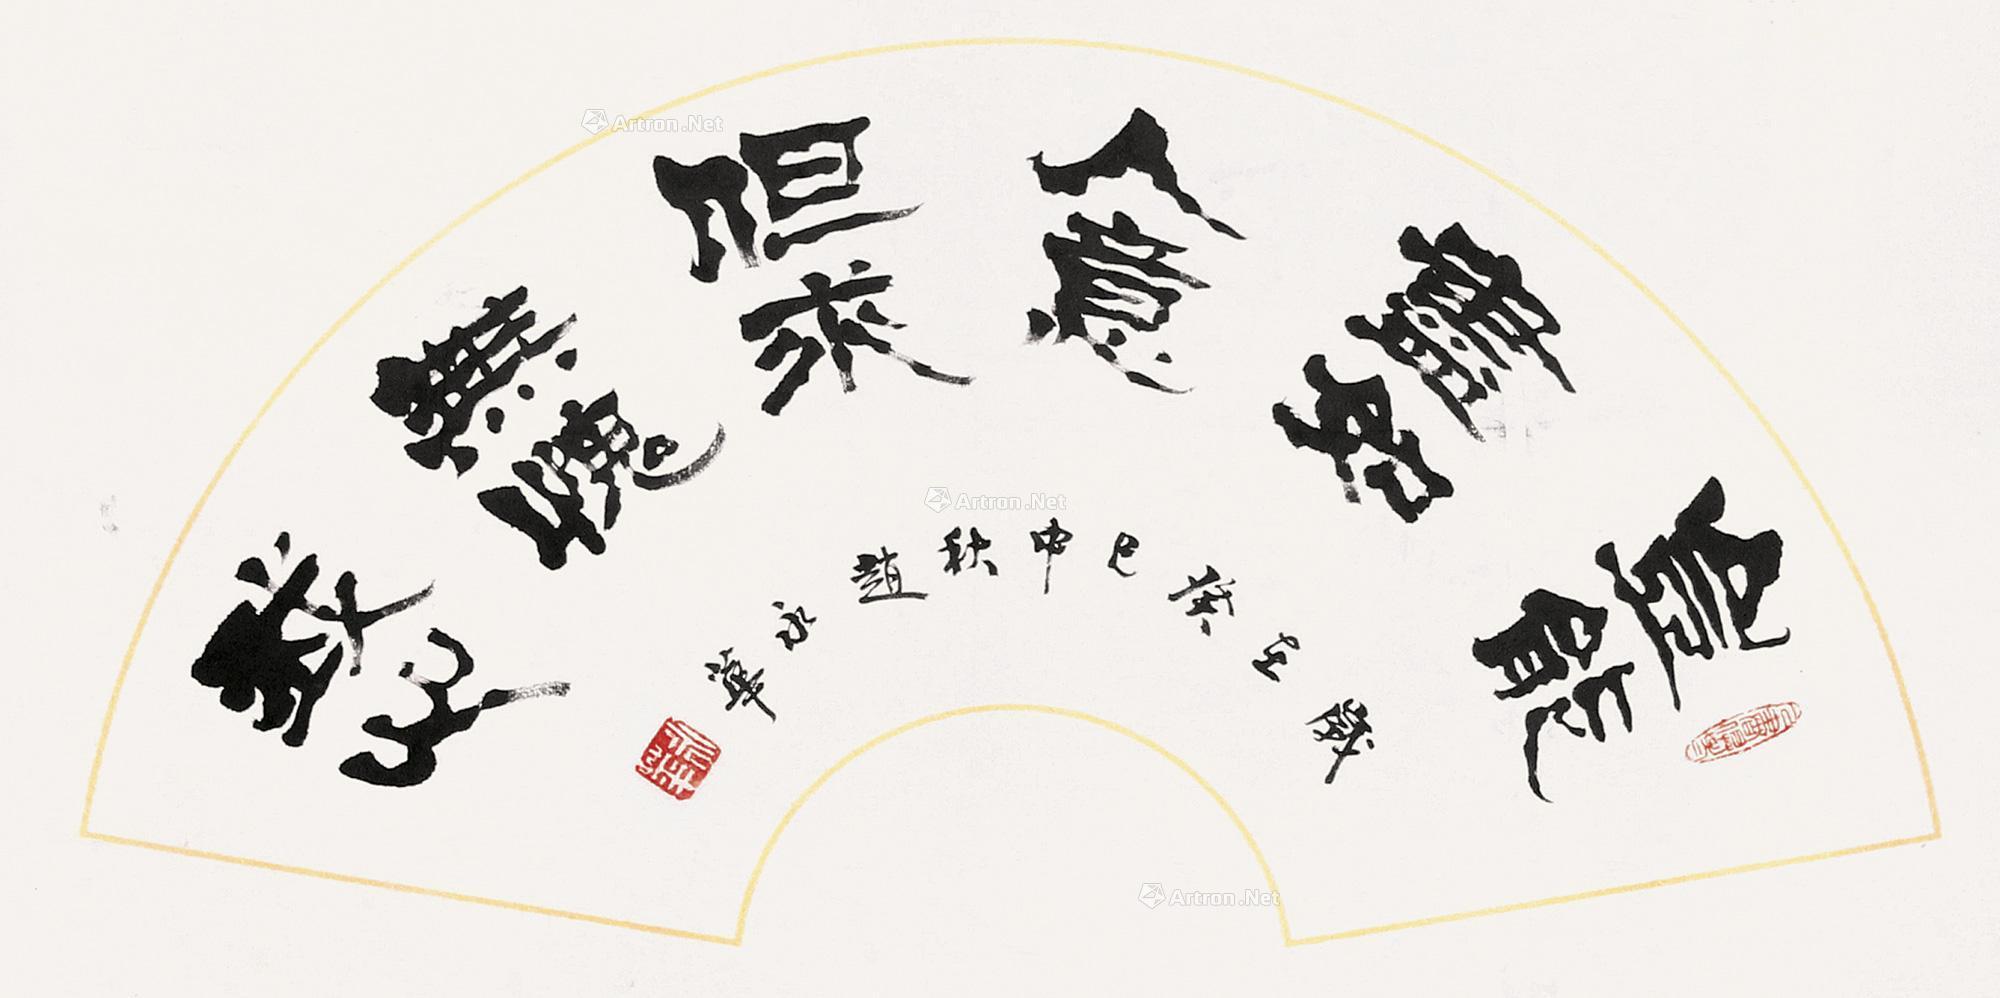 豈能
盡如
人意
但求
無愧
我心
歲在癸巳中秋趙永華
Artron.Net
Artron.Net
Artron.Net